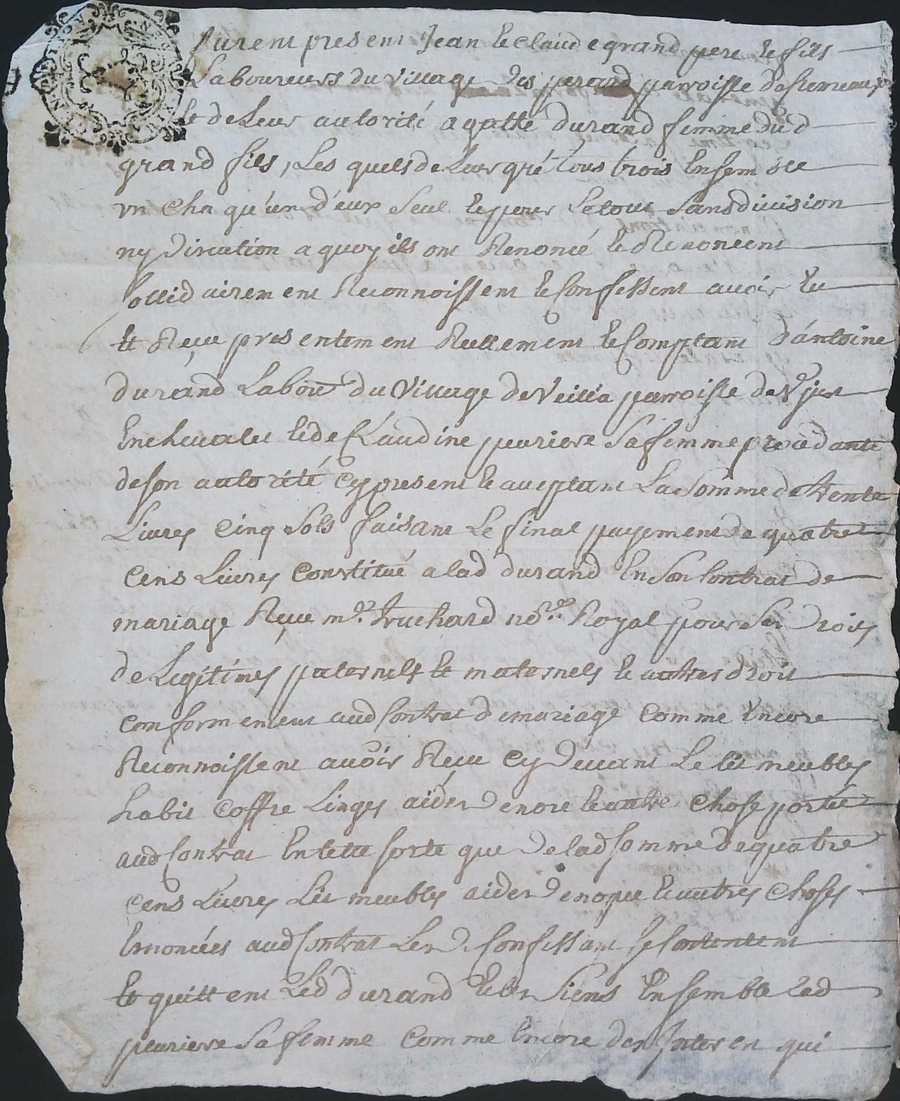 furent present Jean et Claude grand pere et fils
Laboureurs du village des parroisse
et de leur autorité agathe durand femme dud
grand fils, Les quels de leur gré tous trois Ensemble
un Chaqu'un d'eux seul et pour Le tout sans division
ny discution a quoy ils ont Renoncé et Renoncent
sollidairement Reconnoissent et Confessent avoir Eu
et Reçu presentement Reellement et Comptant d'antoine
durand Labour du village de Veilla parroisse de
et de Claudine periere sa femme procedante
de son autorité Cy present et aceptant La somme de trente
Livres Cinq sols faisant Le final payement de quatre
Cens Livres Constitué a lad durand En son Contrat de
mariage Reçu mr Truchard nore Royal pour ses droits
de Legitimes paternels et maternels et autres droit
Conformement aud Contrat de mariage Comme Encore
Reconnoissent avoir Reçu Cy devant Le lit meubles
habit Coffre Linges aides de et autre Chose porteé
aud Contrat En tette sorte que de lad somme de quatre
Cens Livres Lit meubles aides de nopce et autres Choses
Enoncées aud Contrat Lesd Confessant se Contentent
et quittent Led durand et les siens Ensemble lad
periere sa femme Comme Encore des Interets qui